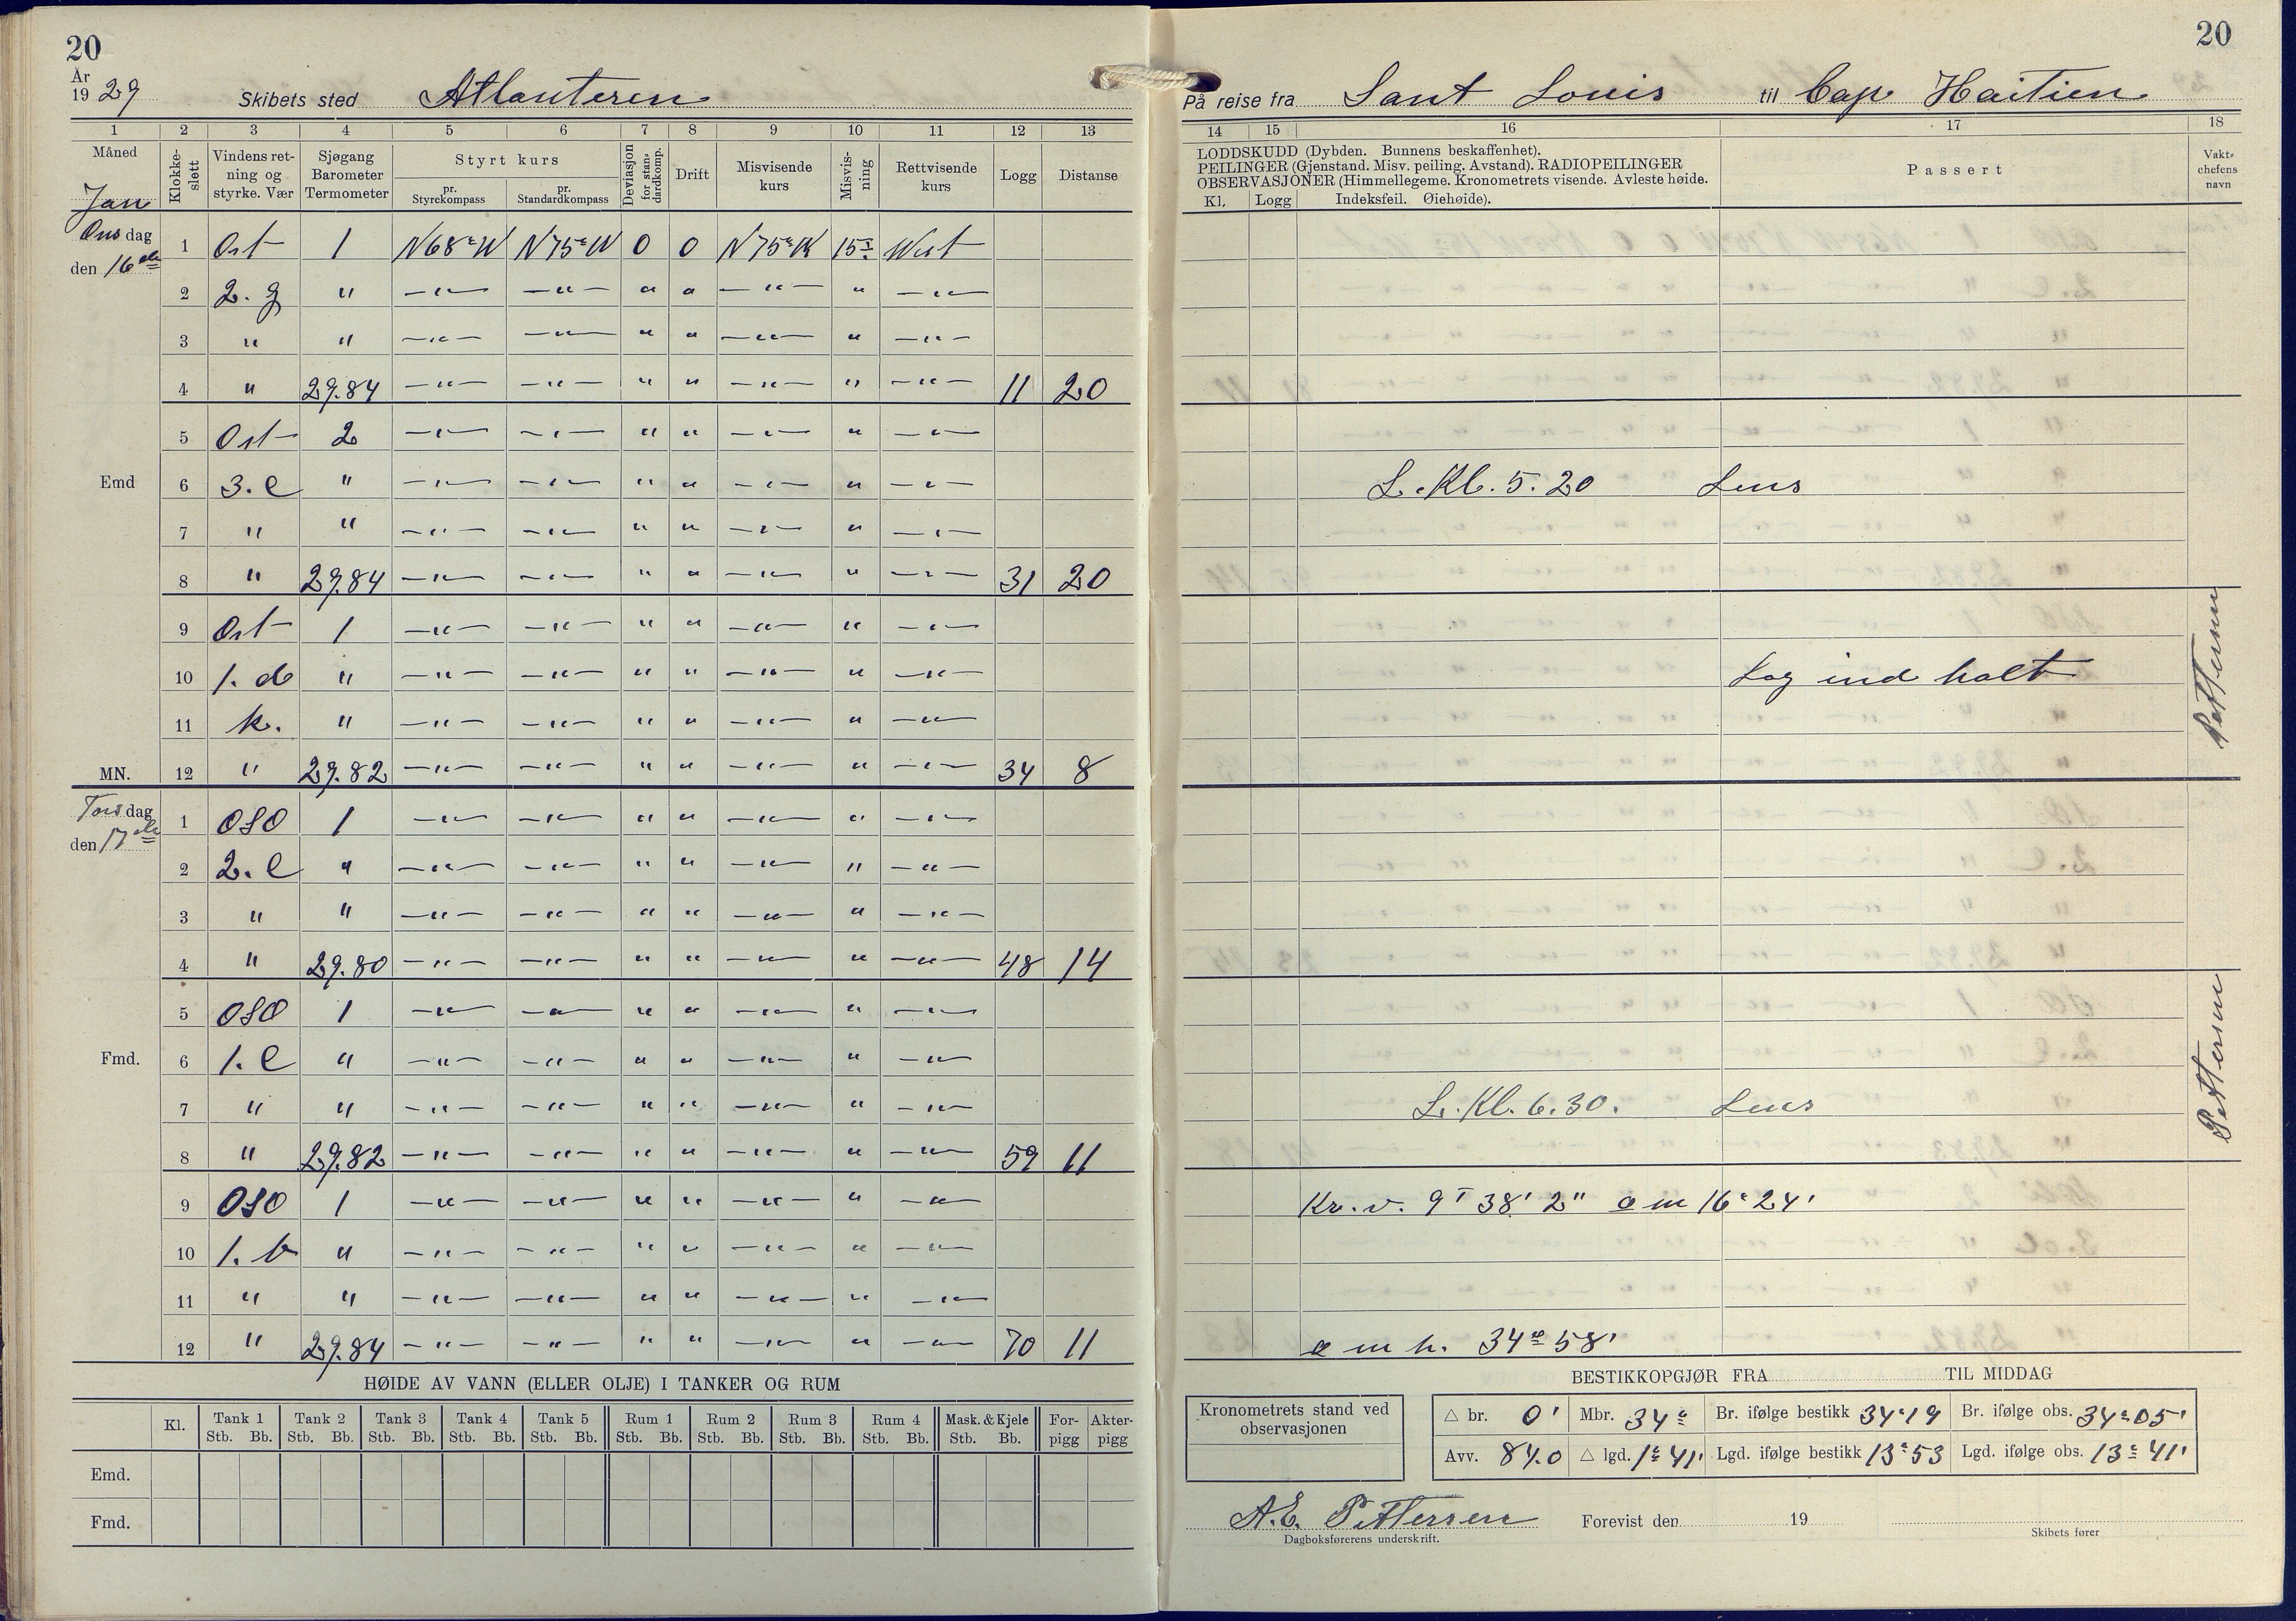 20
År 1929 Skibets sted Atlanteren
1 2 3 4 5 6 7 8 9 10 11 12 13
Måned Klokkeslett Vindens retning og styrke. Vær Sjøgang Barometer Termometer Styrt kurs pr. Styrekompass pr. Standardkompass Deviasjon for standardkomp. Drift Misvisende kurs Misvisning Rettvisende kurs Logg Distanse
Jan
Onsdag den 16de
1 Ost 1 N68°W N75°W 0 0 N75°W 15° West
2 2. g " —"— —"— " " —"— " —"—
3 " " —"— —"— " " —"— " —"—
4 " 29.84 —"— —"— " " —"— " —"— 11 20
5 Ost 2 —"— —"— " " —"— " —"—
Emd 6 3. C " —"— —"— " " —"— " —"—
7 " " —"— —"— " " —"— " —"—
8 " 29.84 —"— —"— " " —"— " —"— 31 20
9 Ost 1 —"— —"— " " —"— " —"—
10 1. d " —"— —"— " " —"— " —"—
11 k. " —"— —"— " " —"— " —"—
MN. 12 " 29.82 —"— —"— " " —"— " —"— 34 8
Torsdag den 17de
1 OSO 1 —"— —"— " " —"— " —"—
2 2. C " —"— —"— " " —"— " —"—
3 " " —"— —"— " " —"— " —"—
4 " 29.80 —"— —"— " " —"— " —"— 48 14
5 OSO 1 —"— —"— " " —"— " —"—
Fmd. 6 1. C " —"— —"— " " —"— " —"—
7 " " —"— —"— " " —"— " —"—
8 " 29.82 —"— —"— " " —"— " —"— 59 11
9 OSO 1 —"— —"— " " —"— " —"—
10 1. b " —"— —"— " " —"— " —"—
11 " " —"— —"— " " —"— " —"—
12 " 29.84 —"— —"— " " —"— " —"— 70 11
HØIDE AV VANN (ELLER OLJE) I TANKER OG RUM
Kl. Tank 1 Tank 2 Tank 3 Tank 4 Tank 5 Rum 1 Rum 2 Rum 3 Rum 4 Mask. & Kjele Forpigg Akterpigg
Stb. Bb. Stb. Bb. Stb. Bb. Stb. Bb. Stb. Bb. Stb. Bb. Stb. Bb. Stb. Bb. Stb. Bb. Stb. Bb.
Emd.
Fmd.
20
På reise fra Sant Louis til Cap Haitien
14 15 16 17 18
LODDSKUDD (Dybden. Bunnens beskaffenhet).
PEILINGER (Gjenstand. Misv. peiling. Avstand). RADIOPEILINGER
OBSERVASJONER (Himmellegeme. Kronometrets visende. Avleste høide.
Kl. Logg Indeksfeil. Øiehøide).
Passert
Vaktchefens navn
L. Kl. 5. 20 Lens
Log ind halt
Pettersen
L. Kl. 6. 30. Lens
Pettersen
Kr. v. 9T 38' 2" o m 16° 24'
o m h. 34° 58'
BESTIKKOPGJØR FRA TIL MIDDAG
Kronometrets stand ved observasjonen
△ br. 0' Mbr. 34° Br. ifølge bestikk 34°19 Br. ifølge obs. 34°05'
Avv. 84.0 △ lgd. 1°41' Lgd. ifølge bestikk 13°53 Lgd. ifølge obs. 13°41'
A. E. Pettersen Forevist den 19
Dagboksførerens underskrift. Skibets fører